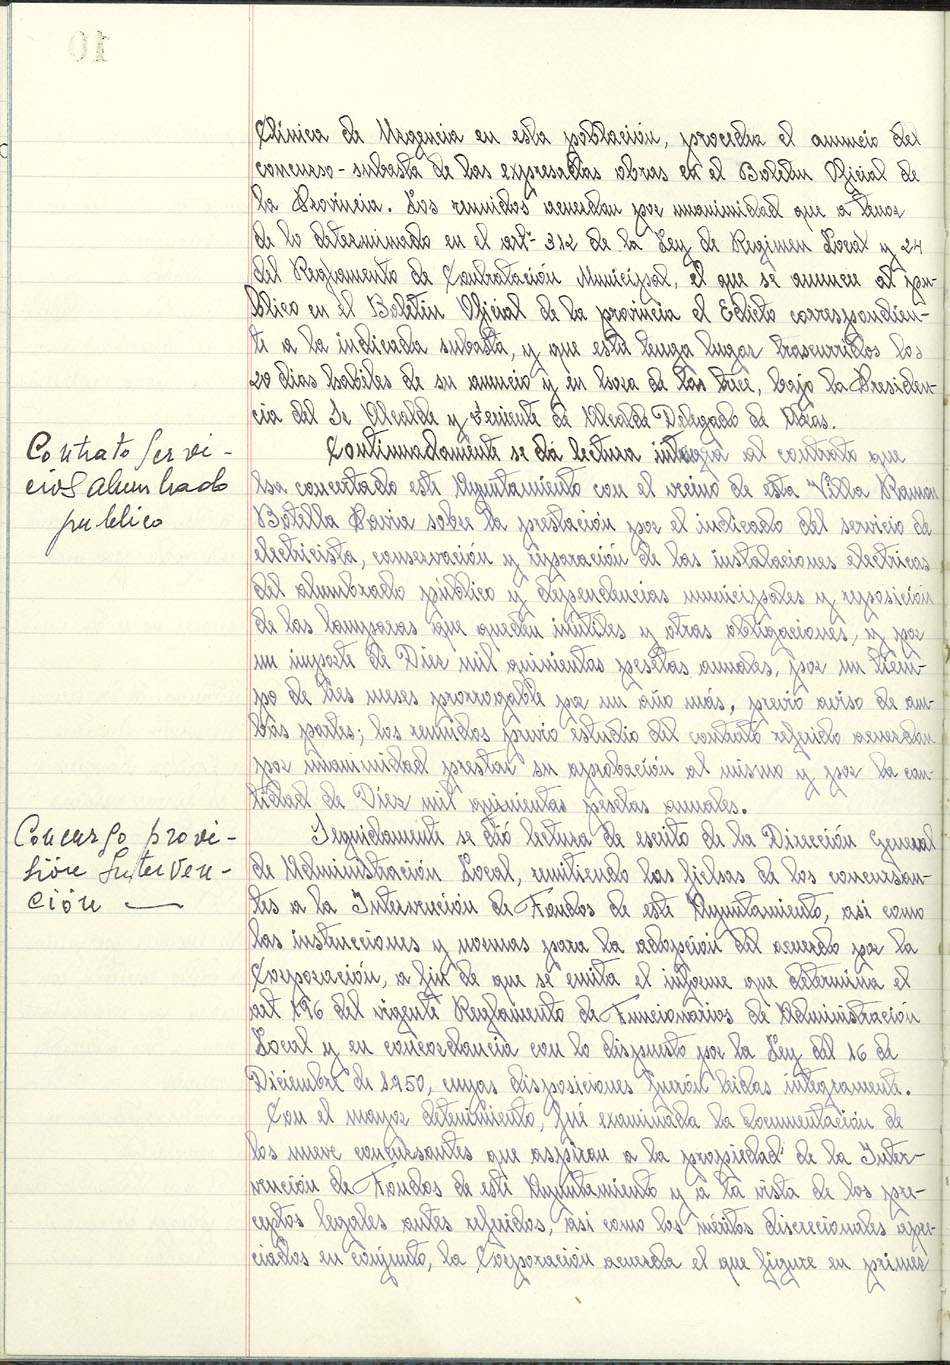 Clinica de Urgencia en esta población, procedia el anuncio del
concurso-subasta de las expresadas obras en el Boletin Oficial de
la Provincia. Los reunidos acuerdan por unanimidad que a tenor
de lo determinado en el artº 312 de la Ley de Regimen Local y 24
del Reglamento de Contratación Municipal, el que se anuncie al pu-
blico en el Boletin Oficial de la provincia el Edicto correspondien-
te a la indicada subasta, y que esta tenga lugar trascurridos los
20 dias habiles de su anuncio y en hora de las trece, bajo la Presiden-
cia del Sr Alcalde y Teniente de Alcalde Delegado de Obras.
Contrato Servi-
cios alumbrado
publico
Continuadamente se da lectura integra al contrato que
ha concertado este Ayuntamiento con el vecino de esta Villa Ramon
Botella Davia sobre la prestación por el indicado del servicio de
electricista, conservación y reparación de las instalaciones electricas
del alumbrado público y dependencias municipales y reposición
de las lamparas que queden inutiles y otras obligaciones, y por
un importe de Diez mil quinientas pesetas anuales, por un tiem-
po de tres meses prorrogable por un año más, previo aviso de am-
bas partes; los reunidos previo estudio del contrato referido acuerdan
por unanimidad prestar su aprobación al mismo y por la can-
tidad de Diez mil quinientas pesetas anuales.
Concurso provi-
sión Interven-
ción —
Seguidamente se dió lectura de escrito de la Dirección General
de Administración Local, remitiendo las fichas de los concursan-
tes a la Intervención de Fondos de este Ayuntamiento, asi como
las instrucciones y normas para la adopción del acuerdo por la
Corporación, a fin de que se emita el informe que determina el
art 196 del vigente Reglamento de Funcionarios de Administración
Local y en concordancia con lo dispuesto por la Ley del 16 de
Diciembre de 1950, cuyas disposiciones fuerón leidas integramente.
Con el mayor detenimiento, fué examinada la documentación de
los nueve concursantes que aspiran a la propiedad de la Inter-
vención de Fondos de este Ayuntamiento y a la vista de los pre-
ceptos legales antes referidos, asi como los méritos discrecionales apre-
ciados en conjunto, la Corporación acuerda el que figure en primer